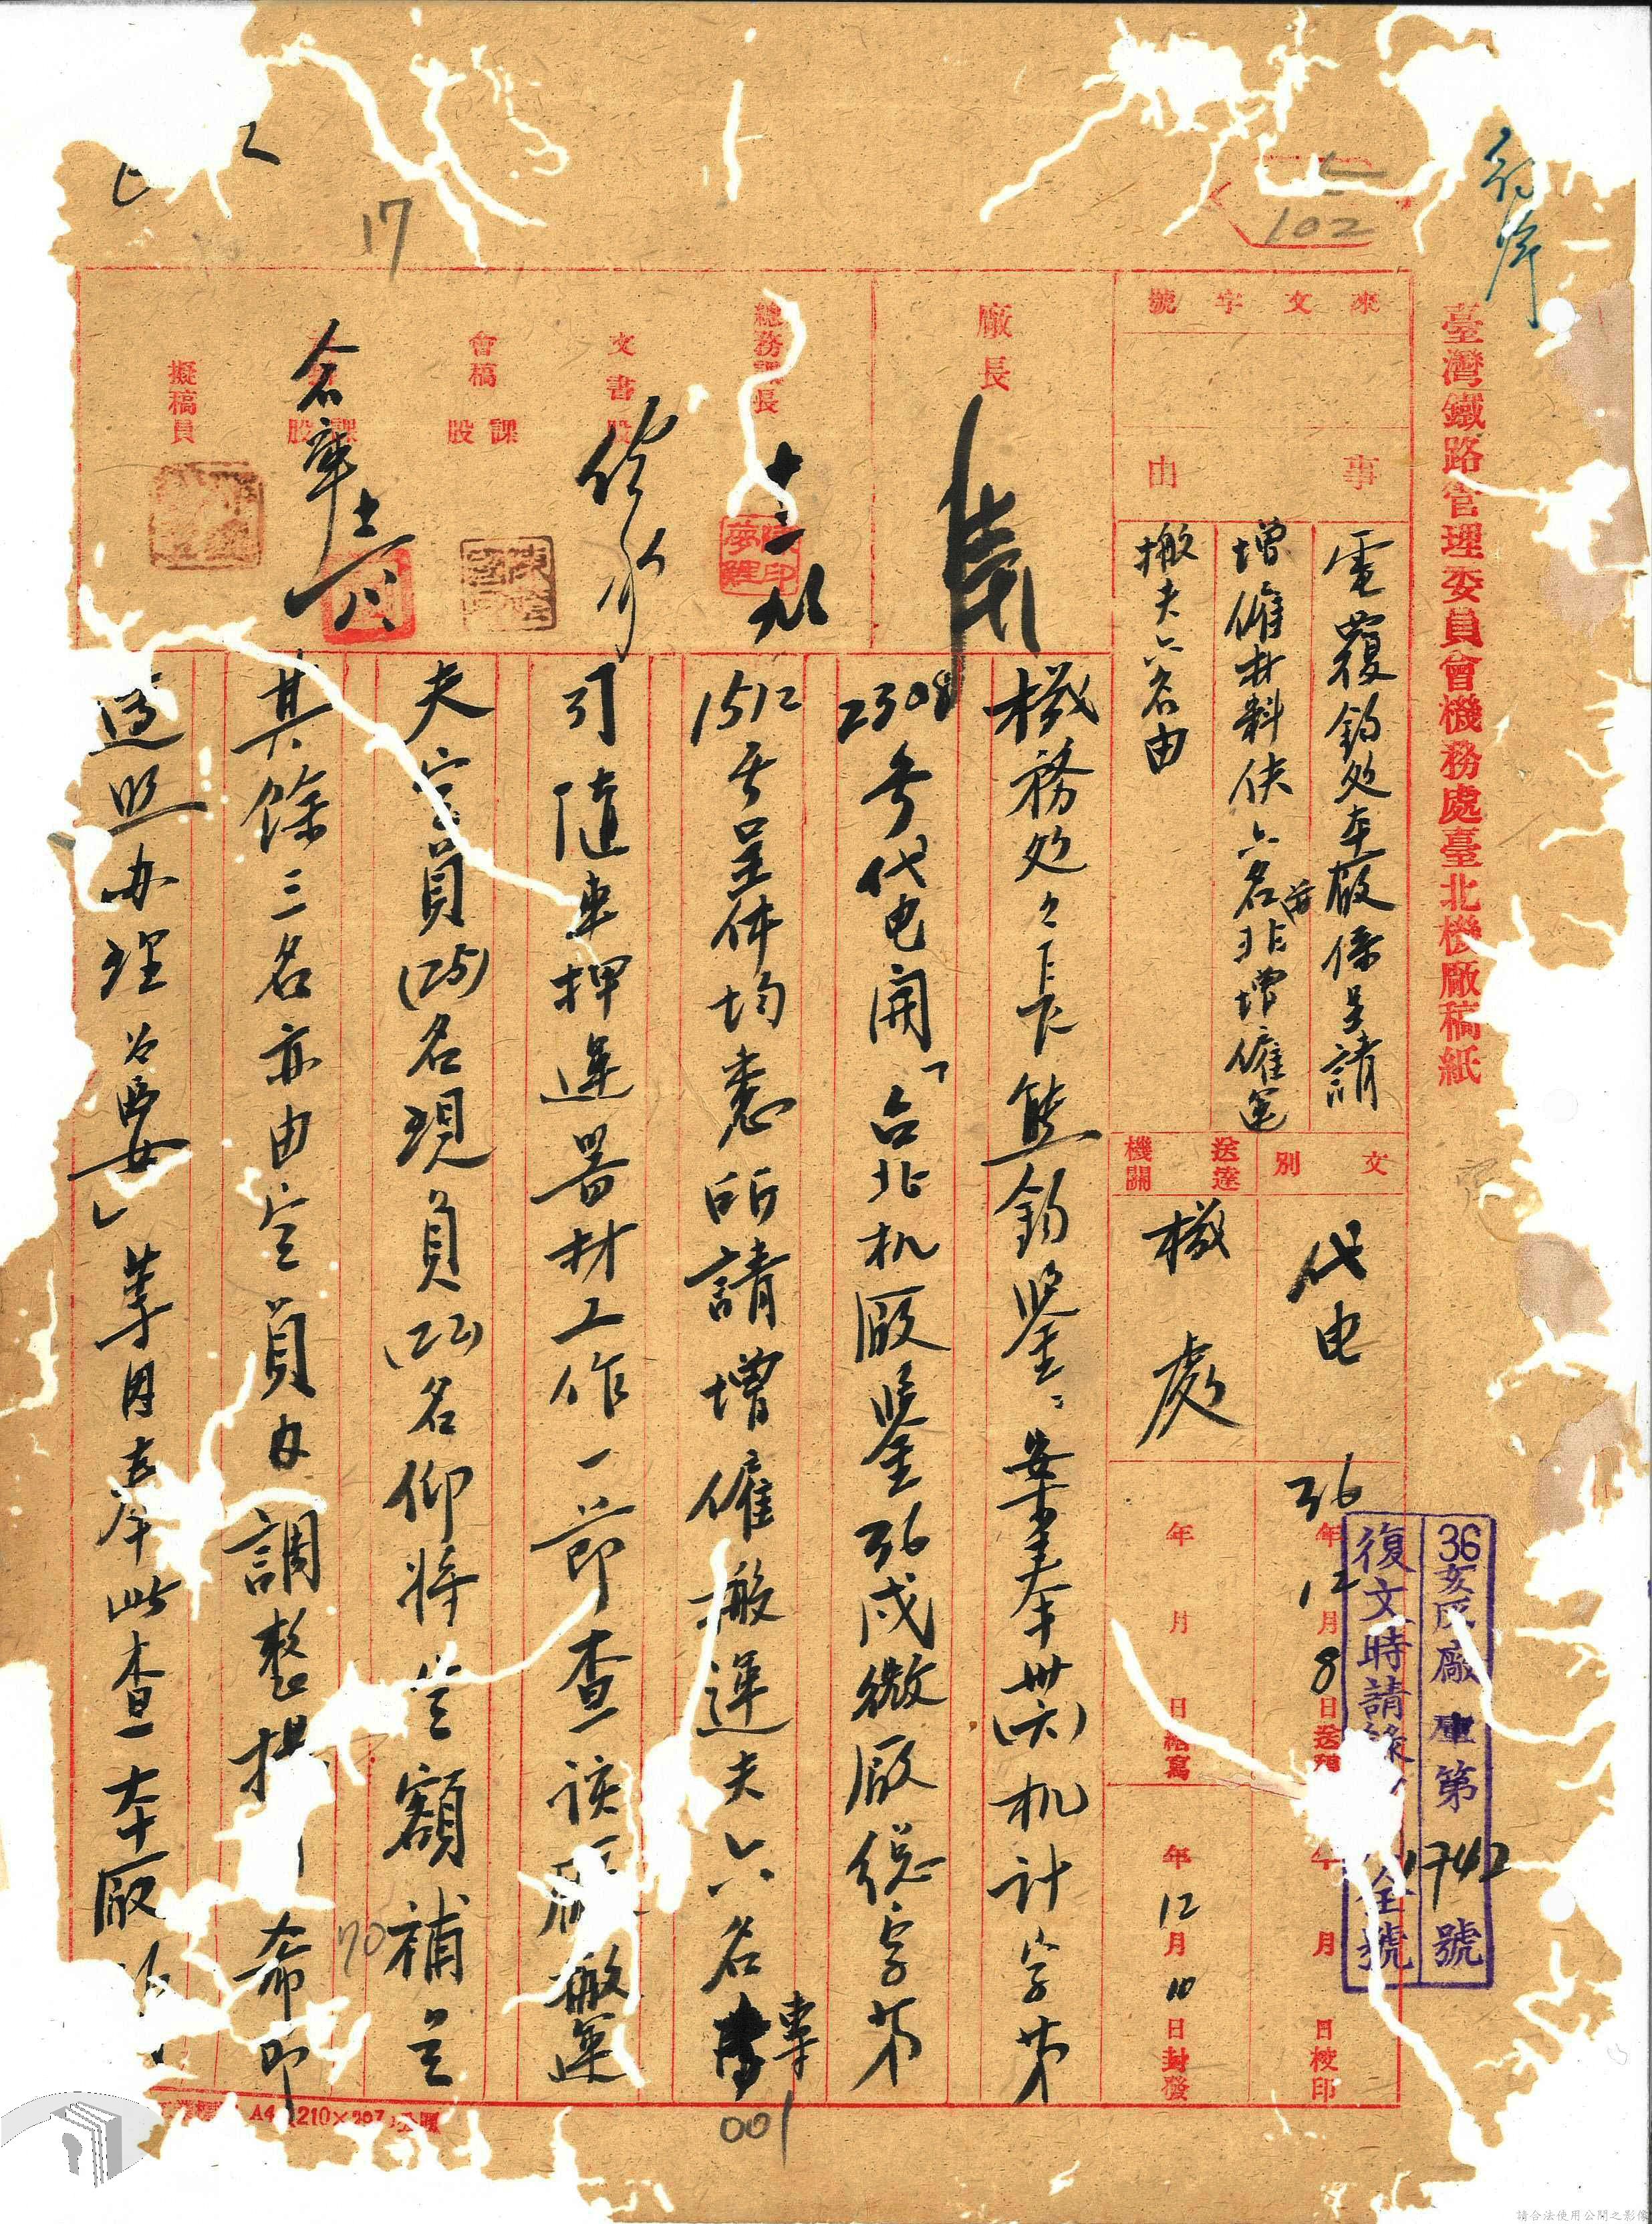 臺灣鐵路管理委員會機務處臺北機廠稿紙
來文字號
事由
電覆鈞处本廠係呈請
增僱材料伕六名並非增僱運
搬夫六名由
文別
代电
送達機關
機處
36年12月8日送
年月日繕寫
年月日校印
年12月10日封發
36亥 廠 第1742號
復文時請 全號
廠長
總務課長
十二 九
文書股
會稿 課 股
課 股
倉庫 十二 八
擬稿員
102
17
機務处处長熊鈞鑒:案奉卅(六)机計字第
2308号代电開「台北机廠鑒36戌微廠總字第
1512号呈件均悉所請增僱搬運夫六名專
司隨車押運器材工作一節查該廠搬運
夫定員(25)名現員(22)名仰將 額補足
其餘三名亦由定員內調整 希即
遵照办理為要」等因奉此查本廠
70
001
A4 210×297公厘
請合法使用公開之影像